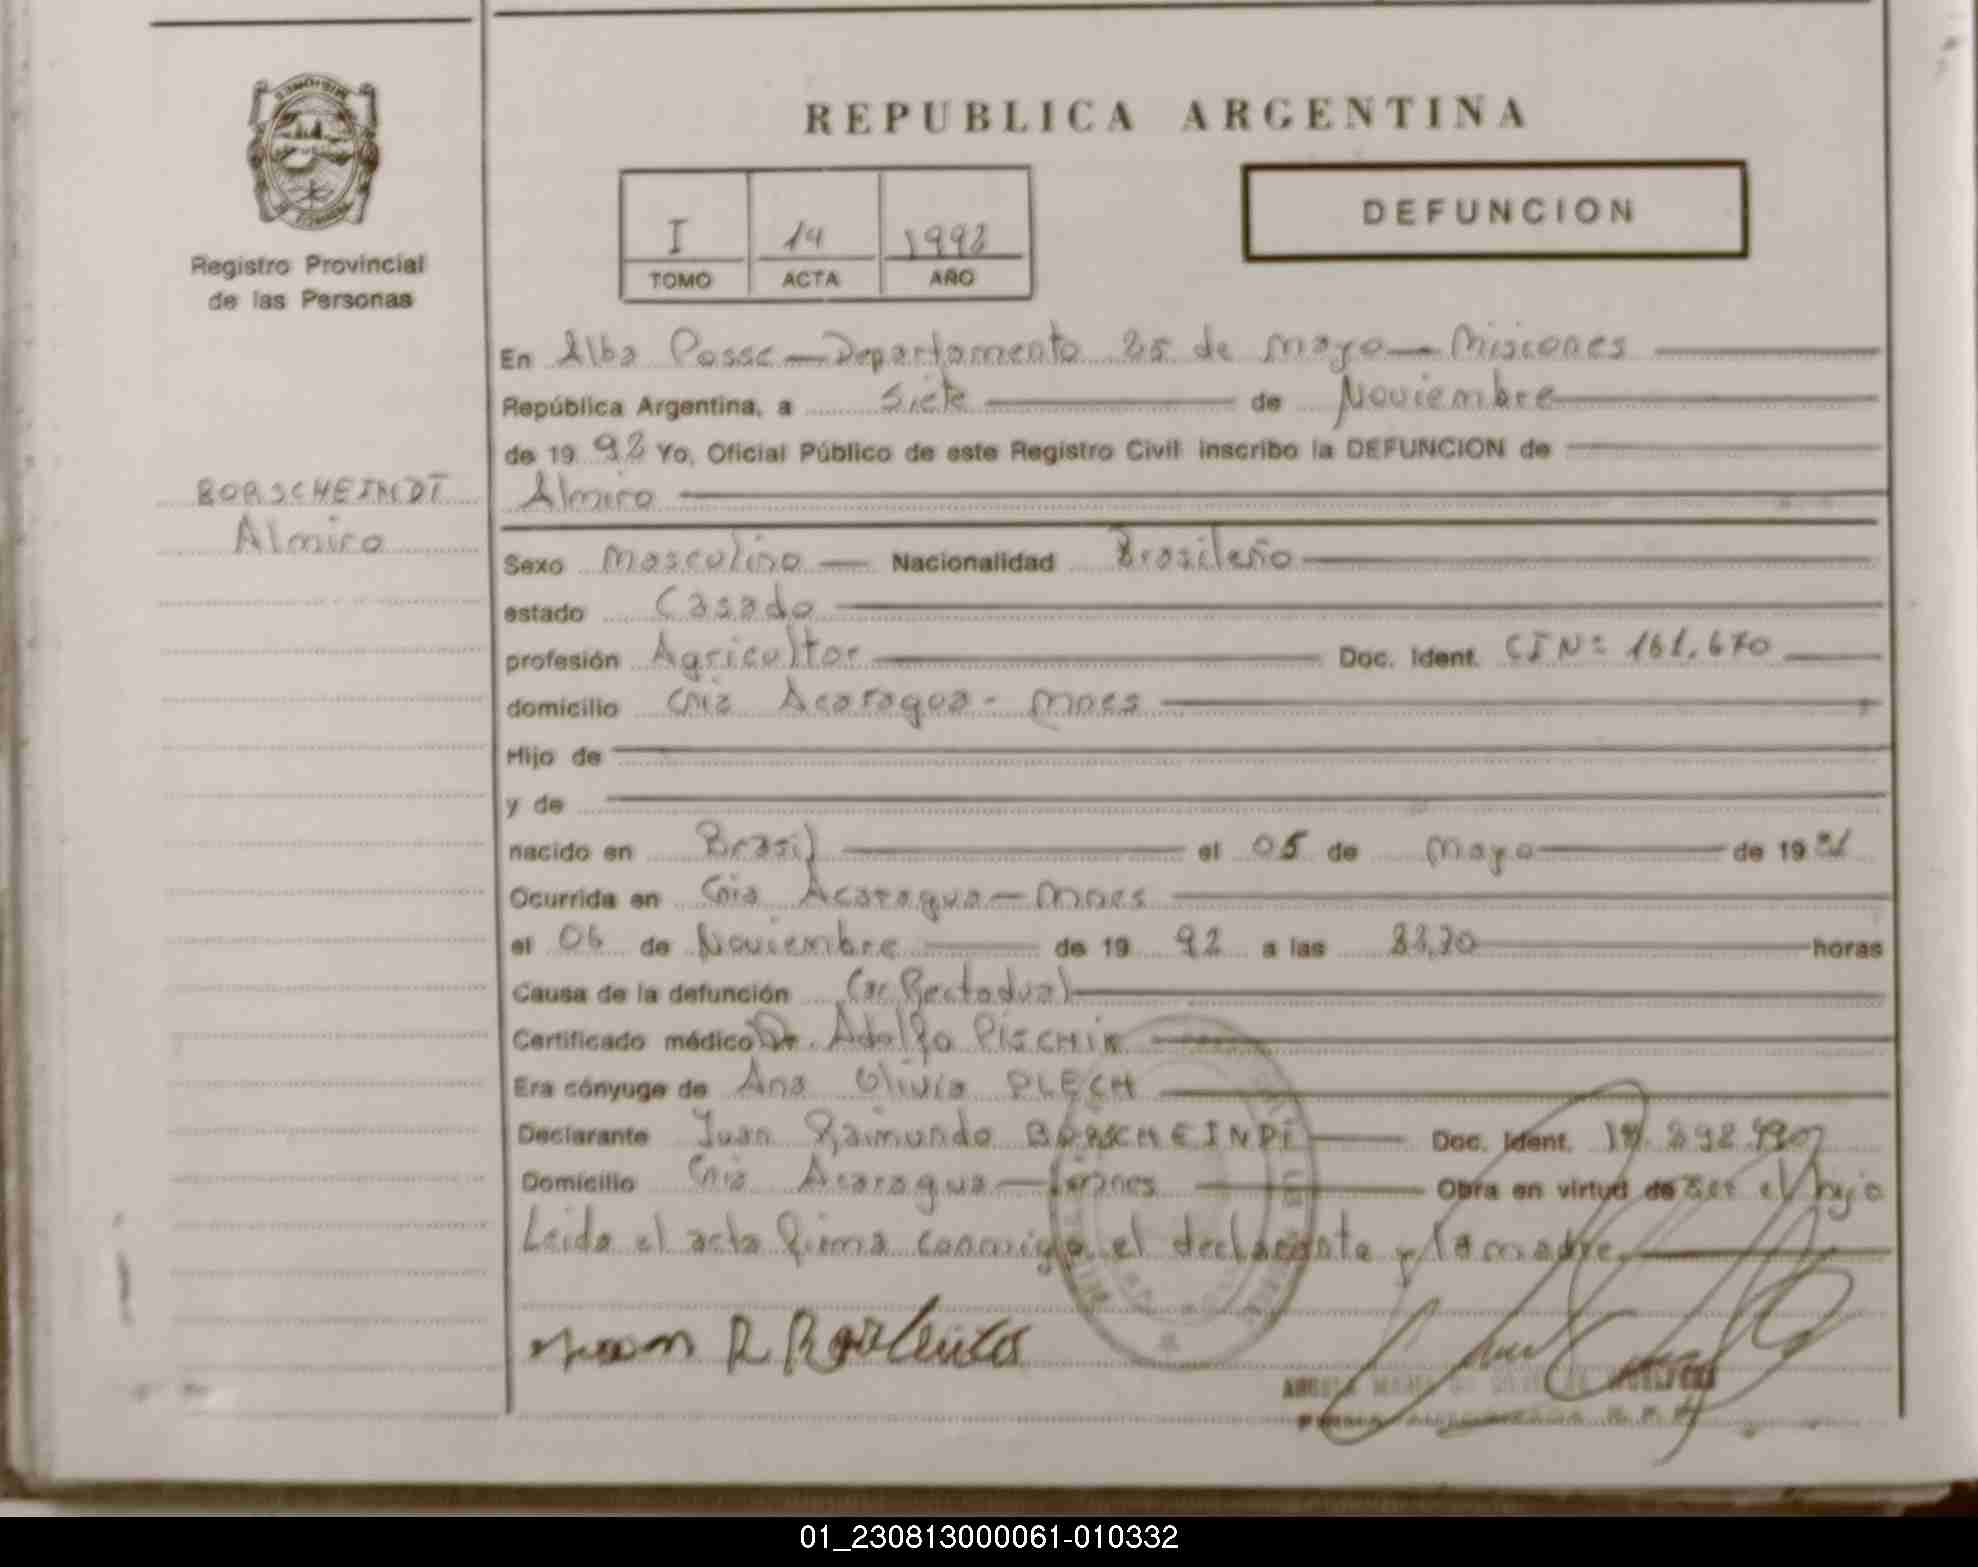 REPUBLICA ARGENTINA
Registro Provincial
de las Personas
I 14 1992
TOMO ACTA AÑO
DEFUNCION
En Alba Posse — Departamento 25 de Mayo — Misiones
República Argentina, a Siete de Noviembre
de 19 92 Yo, Oficial Público de este Registro Civil inscribo la DEFUNCION de
BORSCHEINDT
Almiro
Almiro
Sexo Masculino Nacionalidad Brasileño
estado Casado
profesión Agricultor Doc. Ident. CINº 161.670
domicilio Cnia Acaragua - Mnes
Hijo de
y de
nacido en Brasil el 05 de Mayo de 19
Ocurrida en Cnia Acaragua — Mnes
el 06 de Noviembre de 19 92 a las horas
Causa de la defunción
Certificado médico Dr. Adolfo
Era cónyuge de Ana Olivia PLECH
Declarante Juan Raimundo Doc. Ident.
Domicilio Cnia Acaragua — Mnes Obra en virtud de ser el hijo
Leida el acta firma conmigo el declarante y la madre
01_230813000061-010332